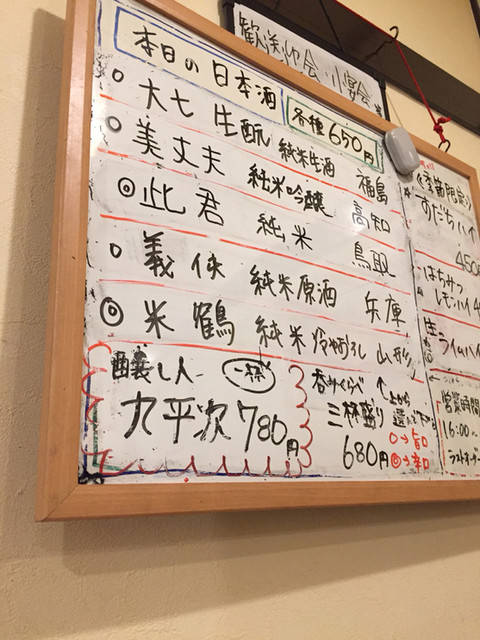 歓送迎会・小宴会
本日の日本酒
各種650円
○ 大七 生酛 純米生酒 福島
○ 美丈夫 純米吟醸 高知
◎ 此君 純米 鳥取
○ 義侠 純米原酒 兵庫
◎ 米鶴 純米 冷やおろし 山形
醸し人 一杯
九平次 780円
呑みくらべ ↑上から
三杯盛り 選んで下さい
680円
○→旨口
◎→辛口
季節限定
すだちハイ
450
はちみつ
レモンハイ
生ライムハイ
営業時間
16:00~
ラストオーダー